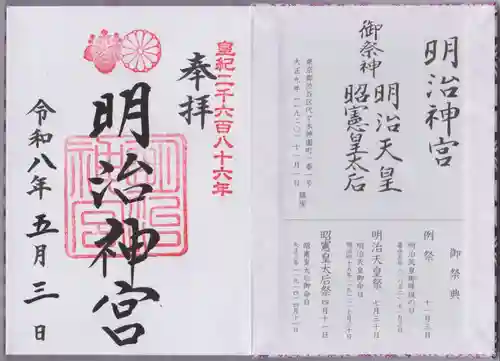 明治神宮
御祭神
明治天皇
昭憲皇太后
東京都渋谷区代々木神園町一番一号
大正九年(一九二〇)十一月一日 鎮座
御祭典
例祭 十一月三日
明治天皇祭 七月三十日
昭憲皇太后祭 四月十一日
皇紀二千六百八十六年
奉拝
明治神宮
令和八年五月三日